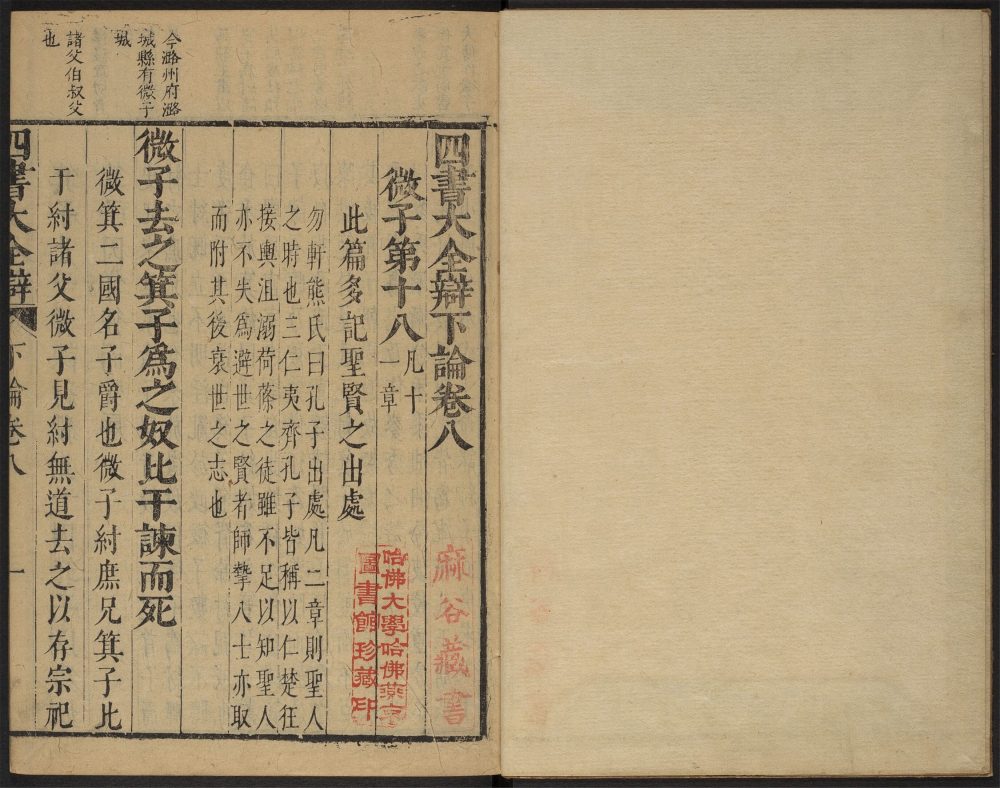 四書大全辯下論卷八
微子第十八 凡十一章
此篇多記聖賢之出處
勿軒熊氏曰孔子出處凡二章則聖人
之時也三仁夷齊孔子皆稱以仁楚狂
接輿沮溺荷蓧之徒雖不足以知聖人
亦不失爲避世之賢者師摯八士亦取
而附其後衰世之志也
微子去之箕子爲之奴比干諫而死
微箕二國名子爵也微子紂庶兄箕子比
干紂諸父微子見紂無道去之以存宗祀
四書大全辯 下論卷八 一
今潞州府潞
城縣有微子
城
諸父伯叔父
也
麻谷藏書
哈佛大學哈佛燕京
圖書館珍藏印